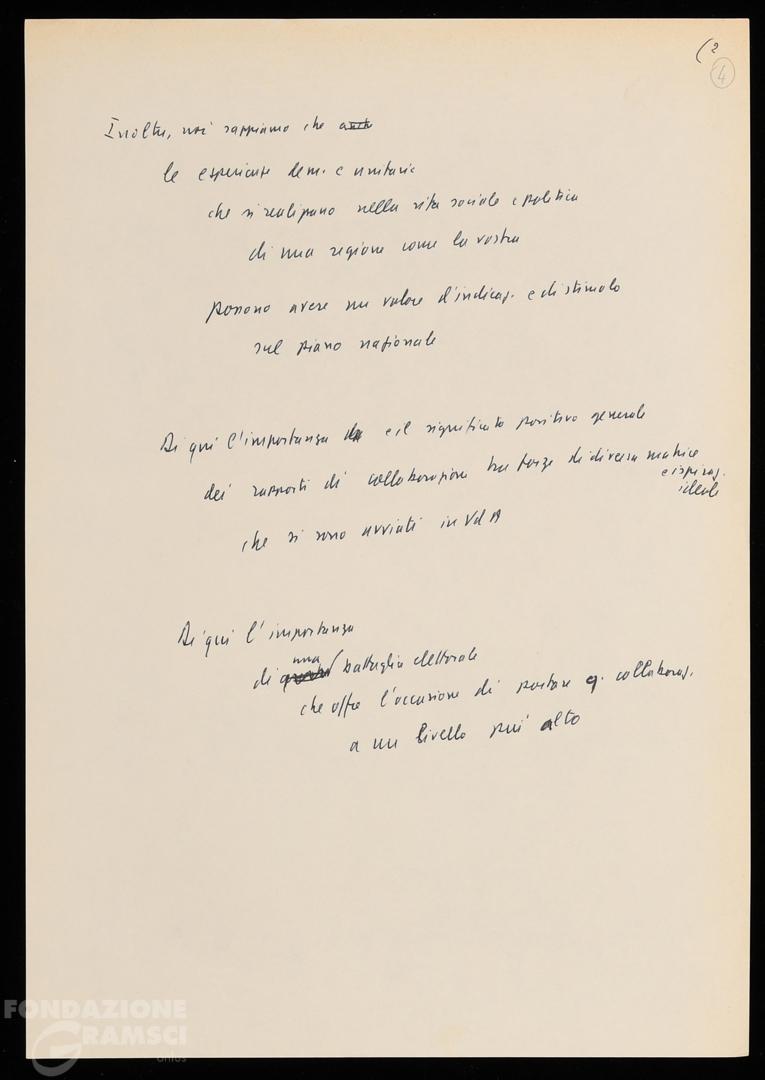 (2
4
Inoltre, noi sappiamo che anche
le esperienze dem. e unitarie
che si realizzano nella vita sociale e politica
di una regione come la vostra
possono avere un valore d'indicaz. e di stimolo
sul piano nazionale
Di qui l'importanza e il significato positivo generale
dei rapporti di collaborazione tra forze di diversa matrice
e ispiraz.
ideale
che si sono avviati in VdA
Di qui l'importanza
una
di questa battaglia elettorale
che offre l'occasione di portare q. collaboraz.
a un livello più alto
FONDAZIONE
GRAMSCI
onlus